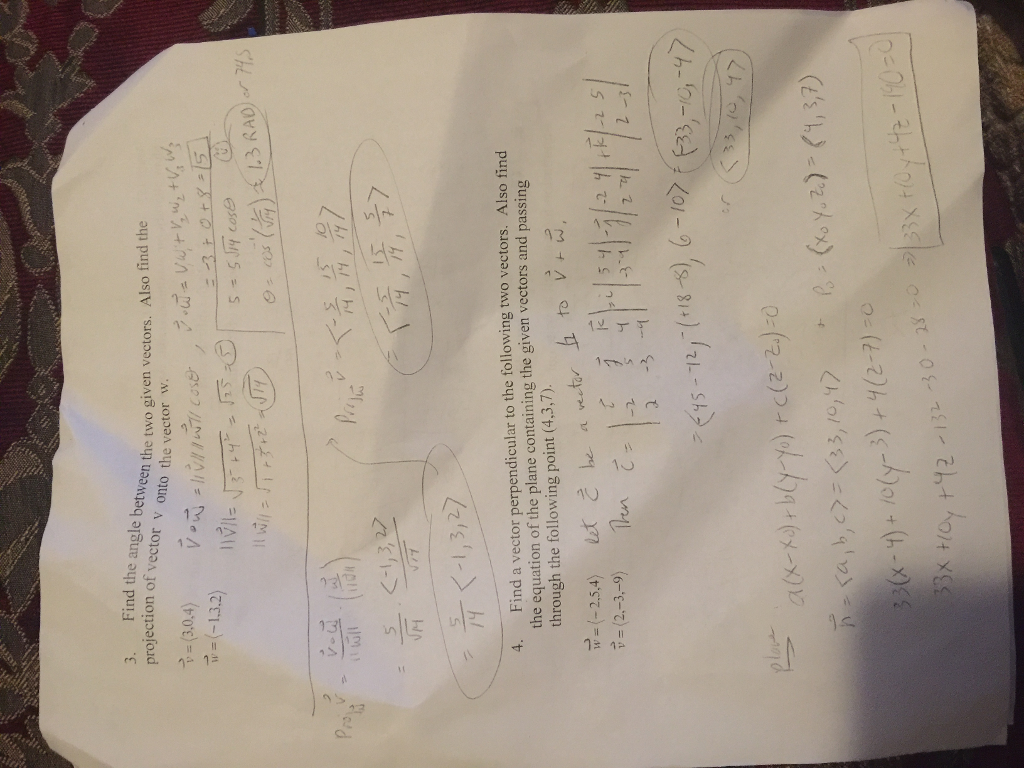 3. Find the angle between the two given vectors. Also find the
projection of vector v onto the vector w.
v⃗=(3,0,4) v⃗∘w⃗ = ||v⃗|| ||w⃗|| cosθ, v⃗∘w⃗ = v₁w₁+v₂w₂+v₃w₃
w⃗=(−1,3,2) = -3+0+8 = 5
||v⃗|| = √(3²+4²) = √25 = 5 5 = 5√14 cosθ
||w⃗|| = √(1+3²+2²) = √14 θ = cos⁻¹(1/√14) ≈ 1.3 RAD or 74.5
Proj_w⃗ v⃗ = v⃗∘w⃗/||w⃗|| · (w⃗/||w⃗||) Proj_w⃗ v⃗ = <-5/14, 15/14, 10/14>
= 5/√14 · <-1,3,2>/√14 = <-5/14, 15/14, 5/7>
= 5/14 <-1,3,2>
4. Find a vector perpendicular to the following two vectors. Also find
the equation of the plane containing the given vectors and passing
through the following point (4,3,7).
w⃗=(−2,5,4) Let c⃗ be a vector ⊥ to v⃗ + w⃗.
v⃗=(2,−3,−9) Then c⃗ = |i⃗ j⃗ k⃗; -2 5 4; 2 -3 -9| = i⃗ |5 4; -3 -9| - j⃗ |-2 4; 2 -9| + k⃗ |-2 5; 2 -3|
= <-45-12, -(+18-8), 6-10> = <-33, -10, -4>
or <33, 10, 4>
plane a(x-x₀)+b(y-y₀)+c(z-z₀)=0
n⃗ = <a,b,c> = <33,10,4> + P₀ = (x₀y₀z₀) = (4,3,7)
33(x-4)+10(y-3)+4(z-7)=0
33x+10y+4z-132-30-28=0 ⇒ 33x+10y+4z-190=0